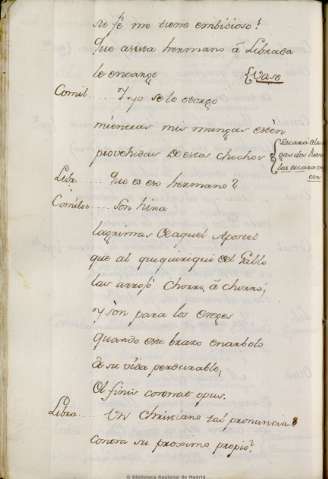 su fé me tiene embidioso?
Que asista hermano â Librada
le encargo {vase
Comil.... Y yo se lo otorgo
mientras mis mangas estèn
provehidas de estas chochos
Libr.... Que es eso hermano?
Comilon... Son hixa
lagrimas de aquel Apostol
que al quiquiriquí del Gallo
las arrojò chorro, â chorro;
Y son para los enojos
Quando este brazo enarbolo
de su vida perdurable,
El finis coronat opus.
Libra.... Un Christiano tal pronuncia
contra su proximo propio?
© Biblioteca Nacional de España